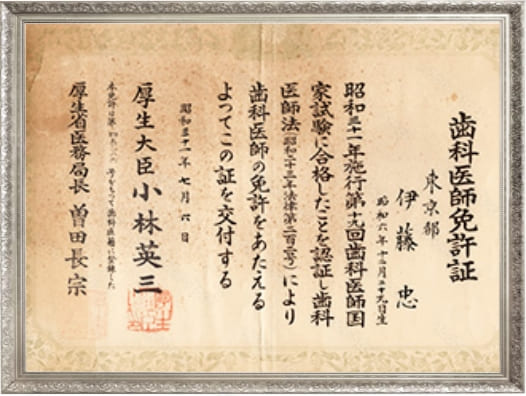 歯科医師免許証
東京都
伊藤忠
昭和六年十二月二十九日生
昭和三十一年施行第十九回歯科医師国
家試験に合格したことを認証し歯科
医師法(昭和二十三年法律第二百二号)により
歯科医師の免許をあたえる
よってこの証を交付する
昭和三十一年七月六日
厚生大臣 小林英三
厚生省医務局長 曽田長宗